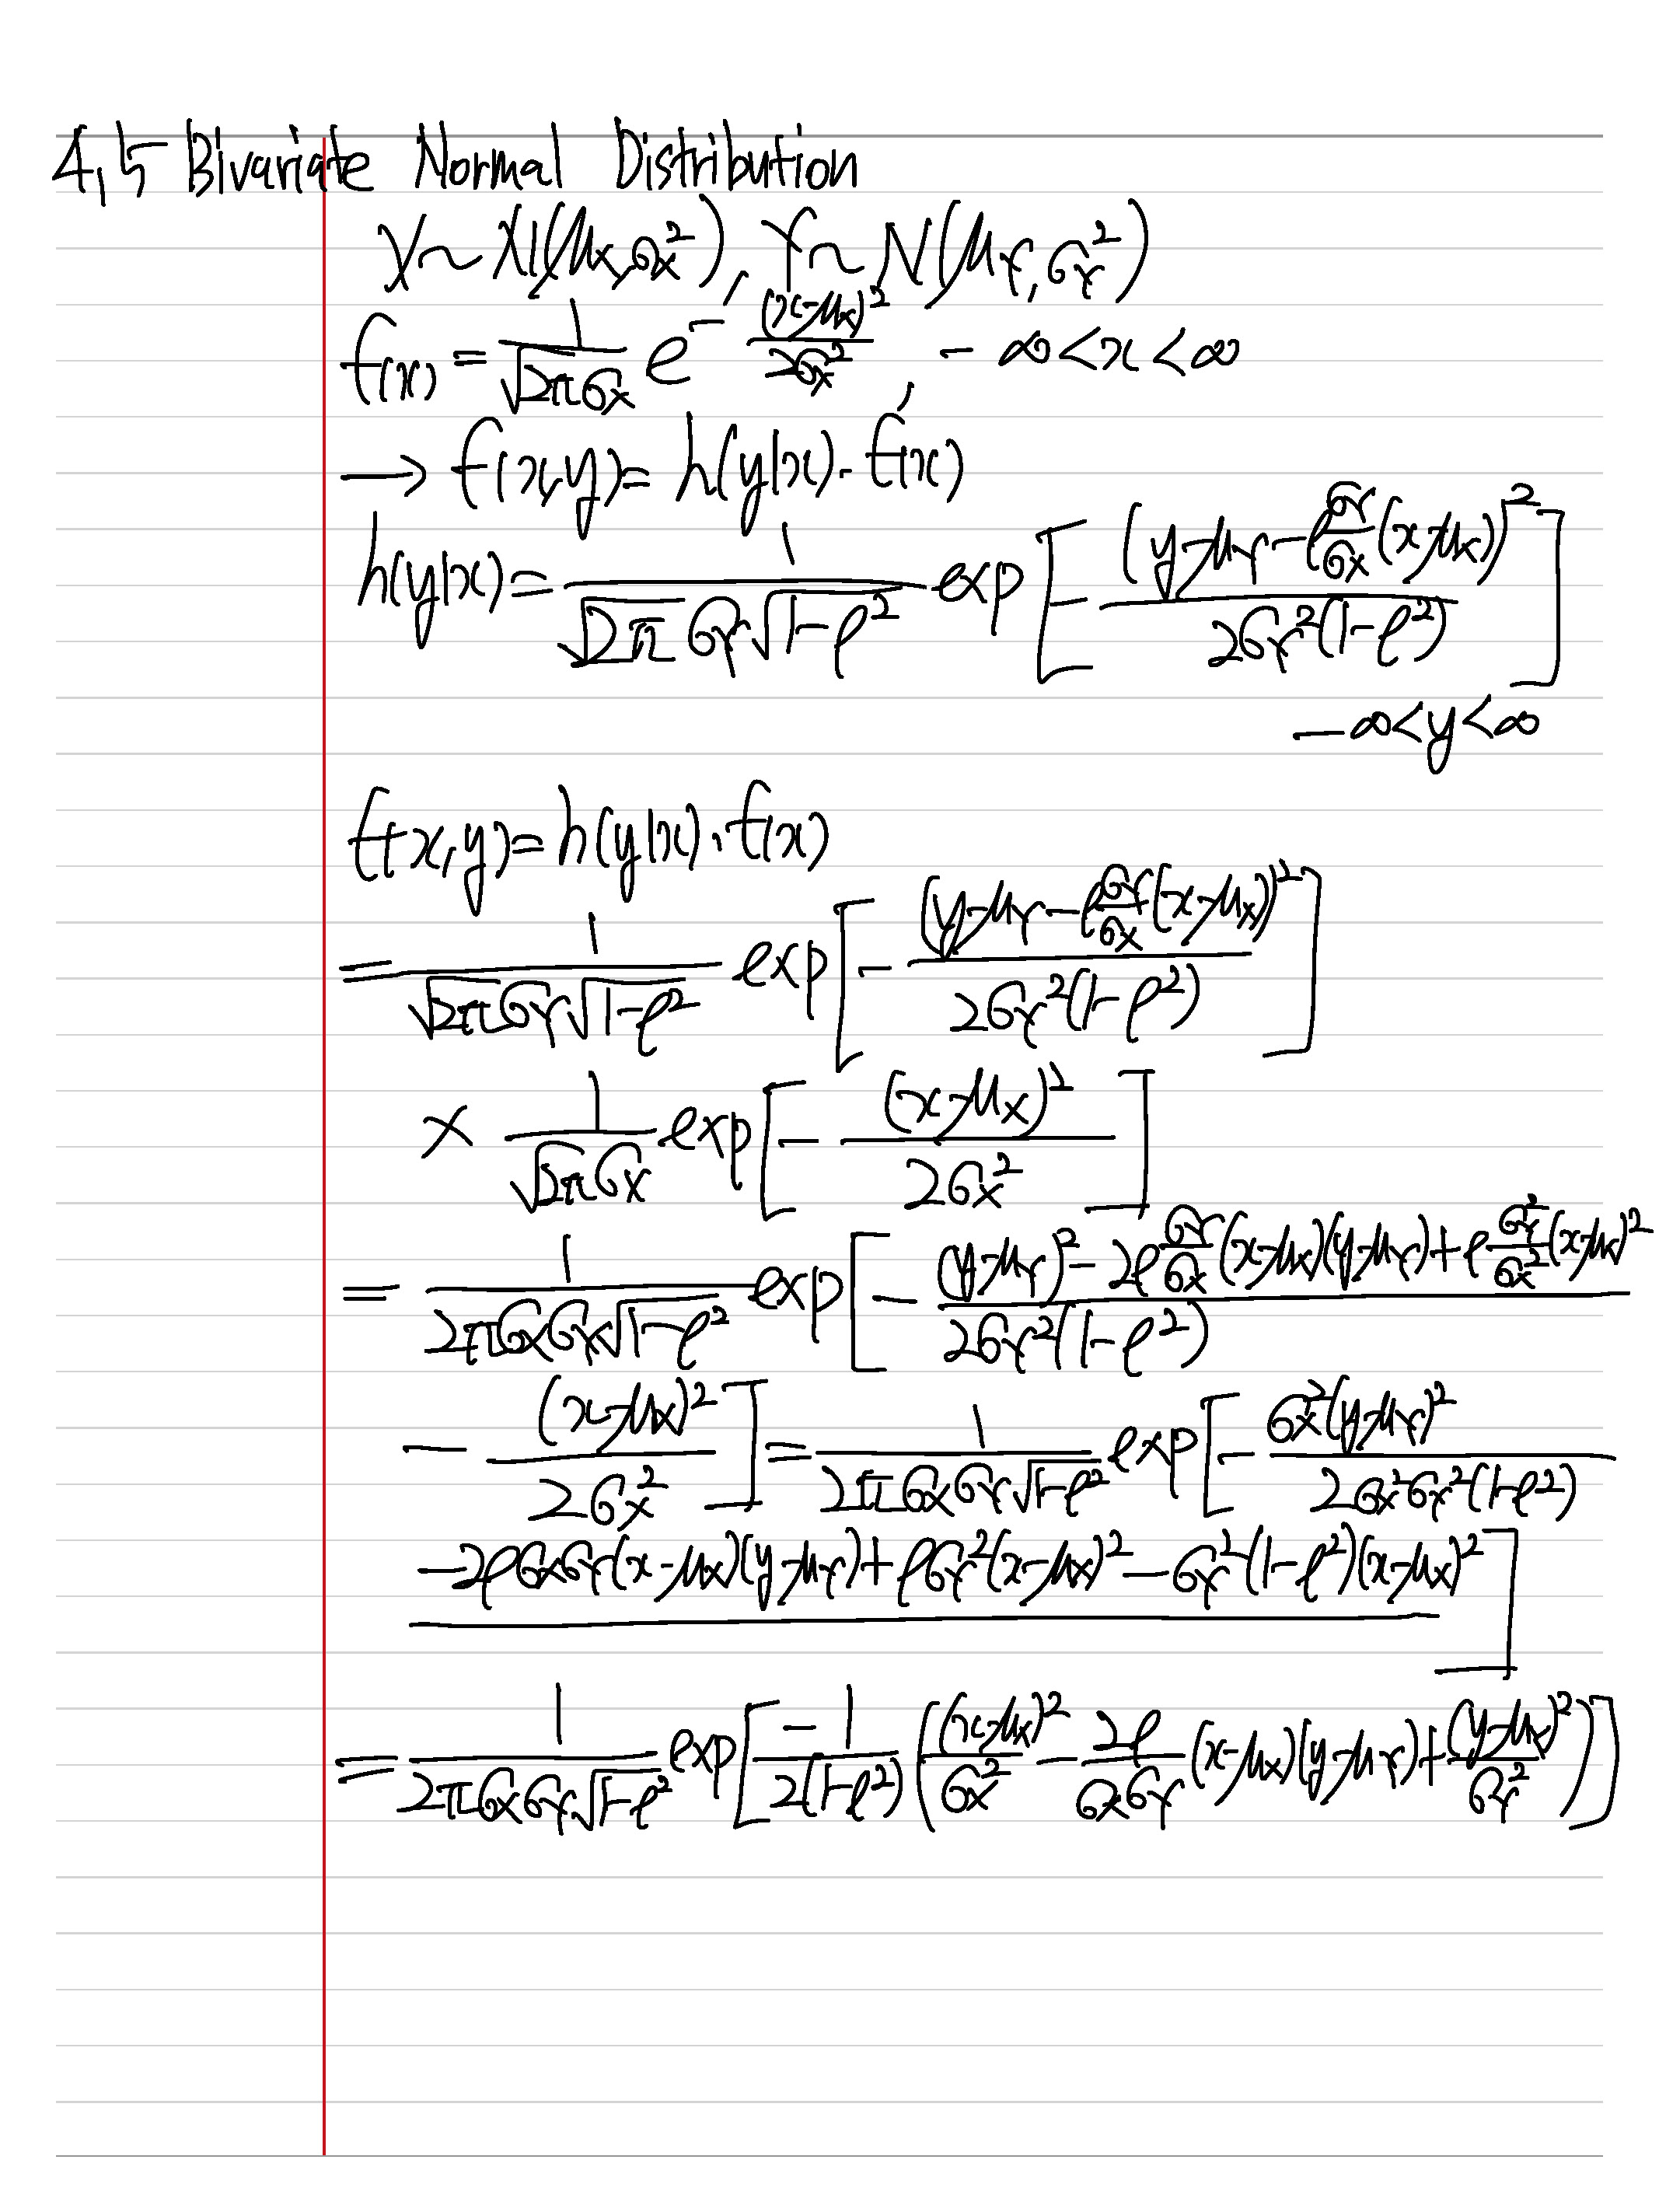 4.5 Bivariate Normal Distribution
X ~ N(μ_X, σ_X²), Y ~ N(μ_Y, σ_Y²)
f(x) = 1/(√2π σ_X) e^{-(x-μ_X)²/(2σ_X²)}, -∞ < x < ∞
→ f(x,y) = h(y|x)·f(x)
h(y|x) = 1/(√2π σ_Y √(1-ρ²)) exp[-(y-μ_Y-ρ(σ_Y/σ_X)(x-μ_X))²/(2σ_Y²(1-ρ²))]
-∞ < y < ∞
f(x,y) = h(y|x)·f(x)
= 1/(√2π σ_Y √(1-ρ²)) exp[-(y-μ_Y-ρ(σ_Y/σ_X)(x-μ_X))²/(2σ_Y²(1-ρ²))]
× 1/(√2π σ_X) exp[-(x-μ_X)²/(2σ_X²)]
= 1/(2πσ_Xσ_Y√(1-ρ²)) exp[-((y-μ_Y)²-2ρ(σ_Y/σ_X)(x-μ_X)(y-μ_Y)+ρ(σ_Y²/σ_X²)(x-μ_X)²)/(2σ_Y²(1-ρ²))
-(x-μ_X)²/(2σ_X²)] = 1/(2πσ_Xσ_Y√(1-ρ²)) exp[-σ_X²(y-μ_Y)²/(2σ_X²σ_Y²(1-ρ²))
-2ρσ_Xσ_Y(x-μ_X)(y-μ_Y)+ρσ_Y²(x-μ_X)²-σ_Y²(1-ρ²)(x-μ_X)²]
= 1/(2πσ_Xσ_Y√(1-ρ²)) exp[-1/(2(1-ρ²)) ((x-μ_X)²/σ_X² - 2ρ/(σ_Xσ_Y) (x-μ_X)(y-μ_Y) + (y-μ_Y)²/σ_Y²)]